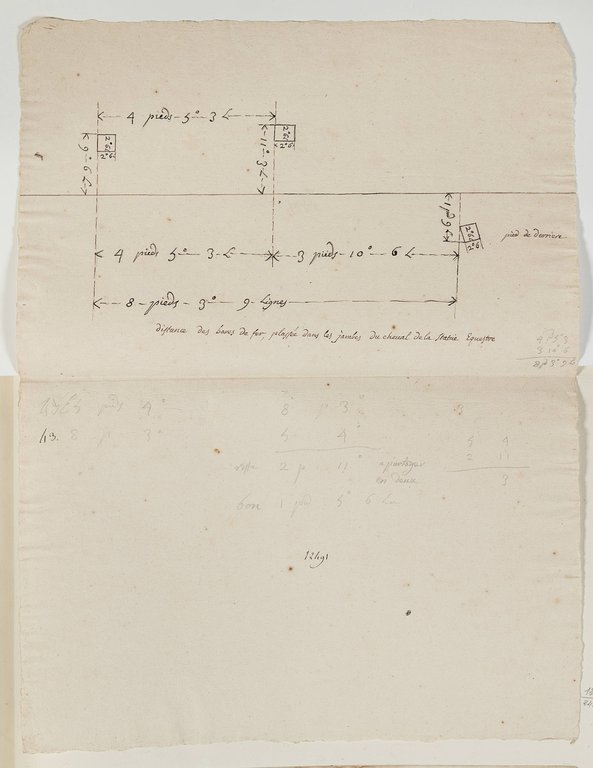 4 pieds 5° 3 L
9° 6 L
2° 6L
2° 6L
11° 3 L
2° 6L
2° 6L
1 pd 6 L
2° 6L
2° 6
pied de derriere
4 pieds 5° 3 L
3 pieds 10° 6 L
8 pieds 3° 9 Lignes
distance des bares de fer, plassée dans les jambes du cheval de la statue Equestre
4 p 5° 3
3 10° 6
8 p 3° 9 L
pieds 4°
8 p 3°
3
8 p 3°
5 4°
5 4
2 11
3
reste 2 p 11° a partager
en deux
bon 1 pied 5° 6 L
12491